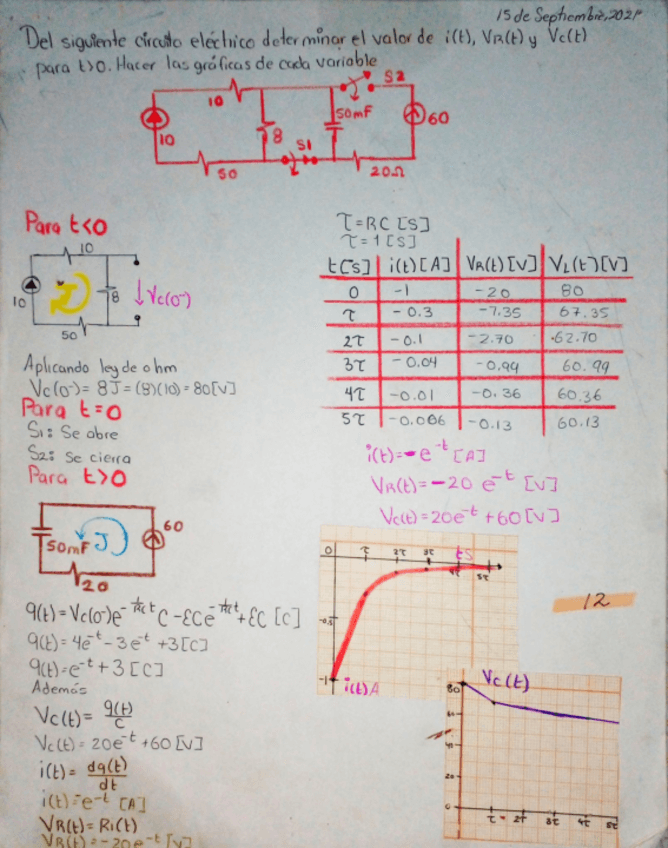 15 de Septiembre, 2021
Del siguiente circuito eléctrico determinar el valor de i(t), VR(t) y Vc(t)
para t>0. Hacer las gráficas de cada variable
10
S2
50mF
60
10
8
S1
50
20Ω
Para t<0
10
10
J
8
Vc(0-)
50
Aplicando ley de ohm
Vc(0-)= 8J = (8)(10) = 80[V]
Para t=0
S1: Se abre
S2: Se cierra
Para t>0
50mF
J
60
20
q(t)=Vc(0-)e^-1/RC t C - ƐCe^-1/RC t + ƐC [C]
q(t)= 4e^-t - 3e^-t +3[C]
q(t)=e^-t + 3 [C]
Además
Vc(t)= q(t)/C
Vc(t)= 20e^-t +60[V]
i(t)= dq(t)/dt
i(t)=e^-t [A]
VR(t)= Ri(t)
VR(t)=-20e^-t [V]
τ=RC [S]
τ=1[S]
t[s] i(t)[A] VR(t)[V] VL(t)[V]
0 -1 -20 80
τ -0.3 -7.35 67.35
2τ -0.1 -2.70 62.70
3τ -0.04 -0.99 60.99
4τ -0.01 -0.36 60.36
5τ -0.006 -0.13 60.13
i(t)=-e^-t [A]
VR(t)=-20 e^-t [V]
Vc(t)=20e^-t +60[V]
0 τ 2τ 3τ ts
4τ 5τ
-0.5
-1
i(t)A
12
Vc(t)
80
20
0
τ 2τ 3τ 4τ 5τ